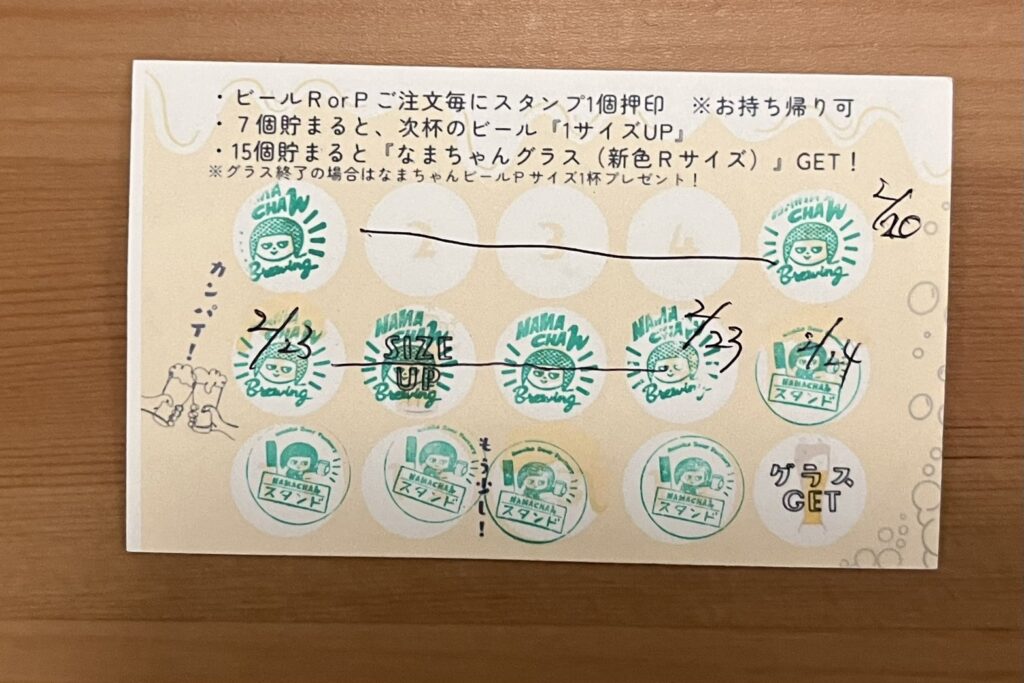 ・ビールRorPご注文毎にスタンプ1個押印 ※お持ち帰り可
・7個貯まると、次杯のビール『1サイズUP』
・15個貯まると『なまちゃんグラス(新色Rサイズ)』GET!
※グラス終了の場合はなまちゃんビールPサイズ1杯プレゼント!
NAMA CHAN Brewing
2
3
4
NAMA CHAN Brewing
2/20
カンパイ!
2/23
NAMA CHAN Brewing
NAMA CHAN Brewing
SIZE UP
NAMA CHAN Brewing
NAMA CHAN Brewing
2/23
2/24
NAMACHAん スタンド
NAMACHAん スタンド
NAMACHAん スタンド
もう少し!
NAMACHAん スタンド
NAMACHAん スタンド
グラス
GET